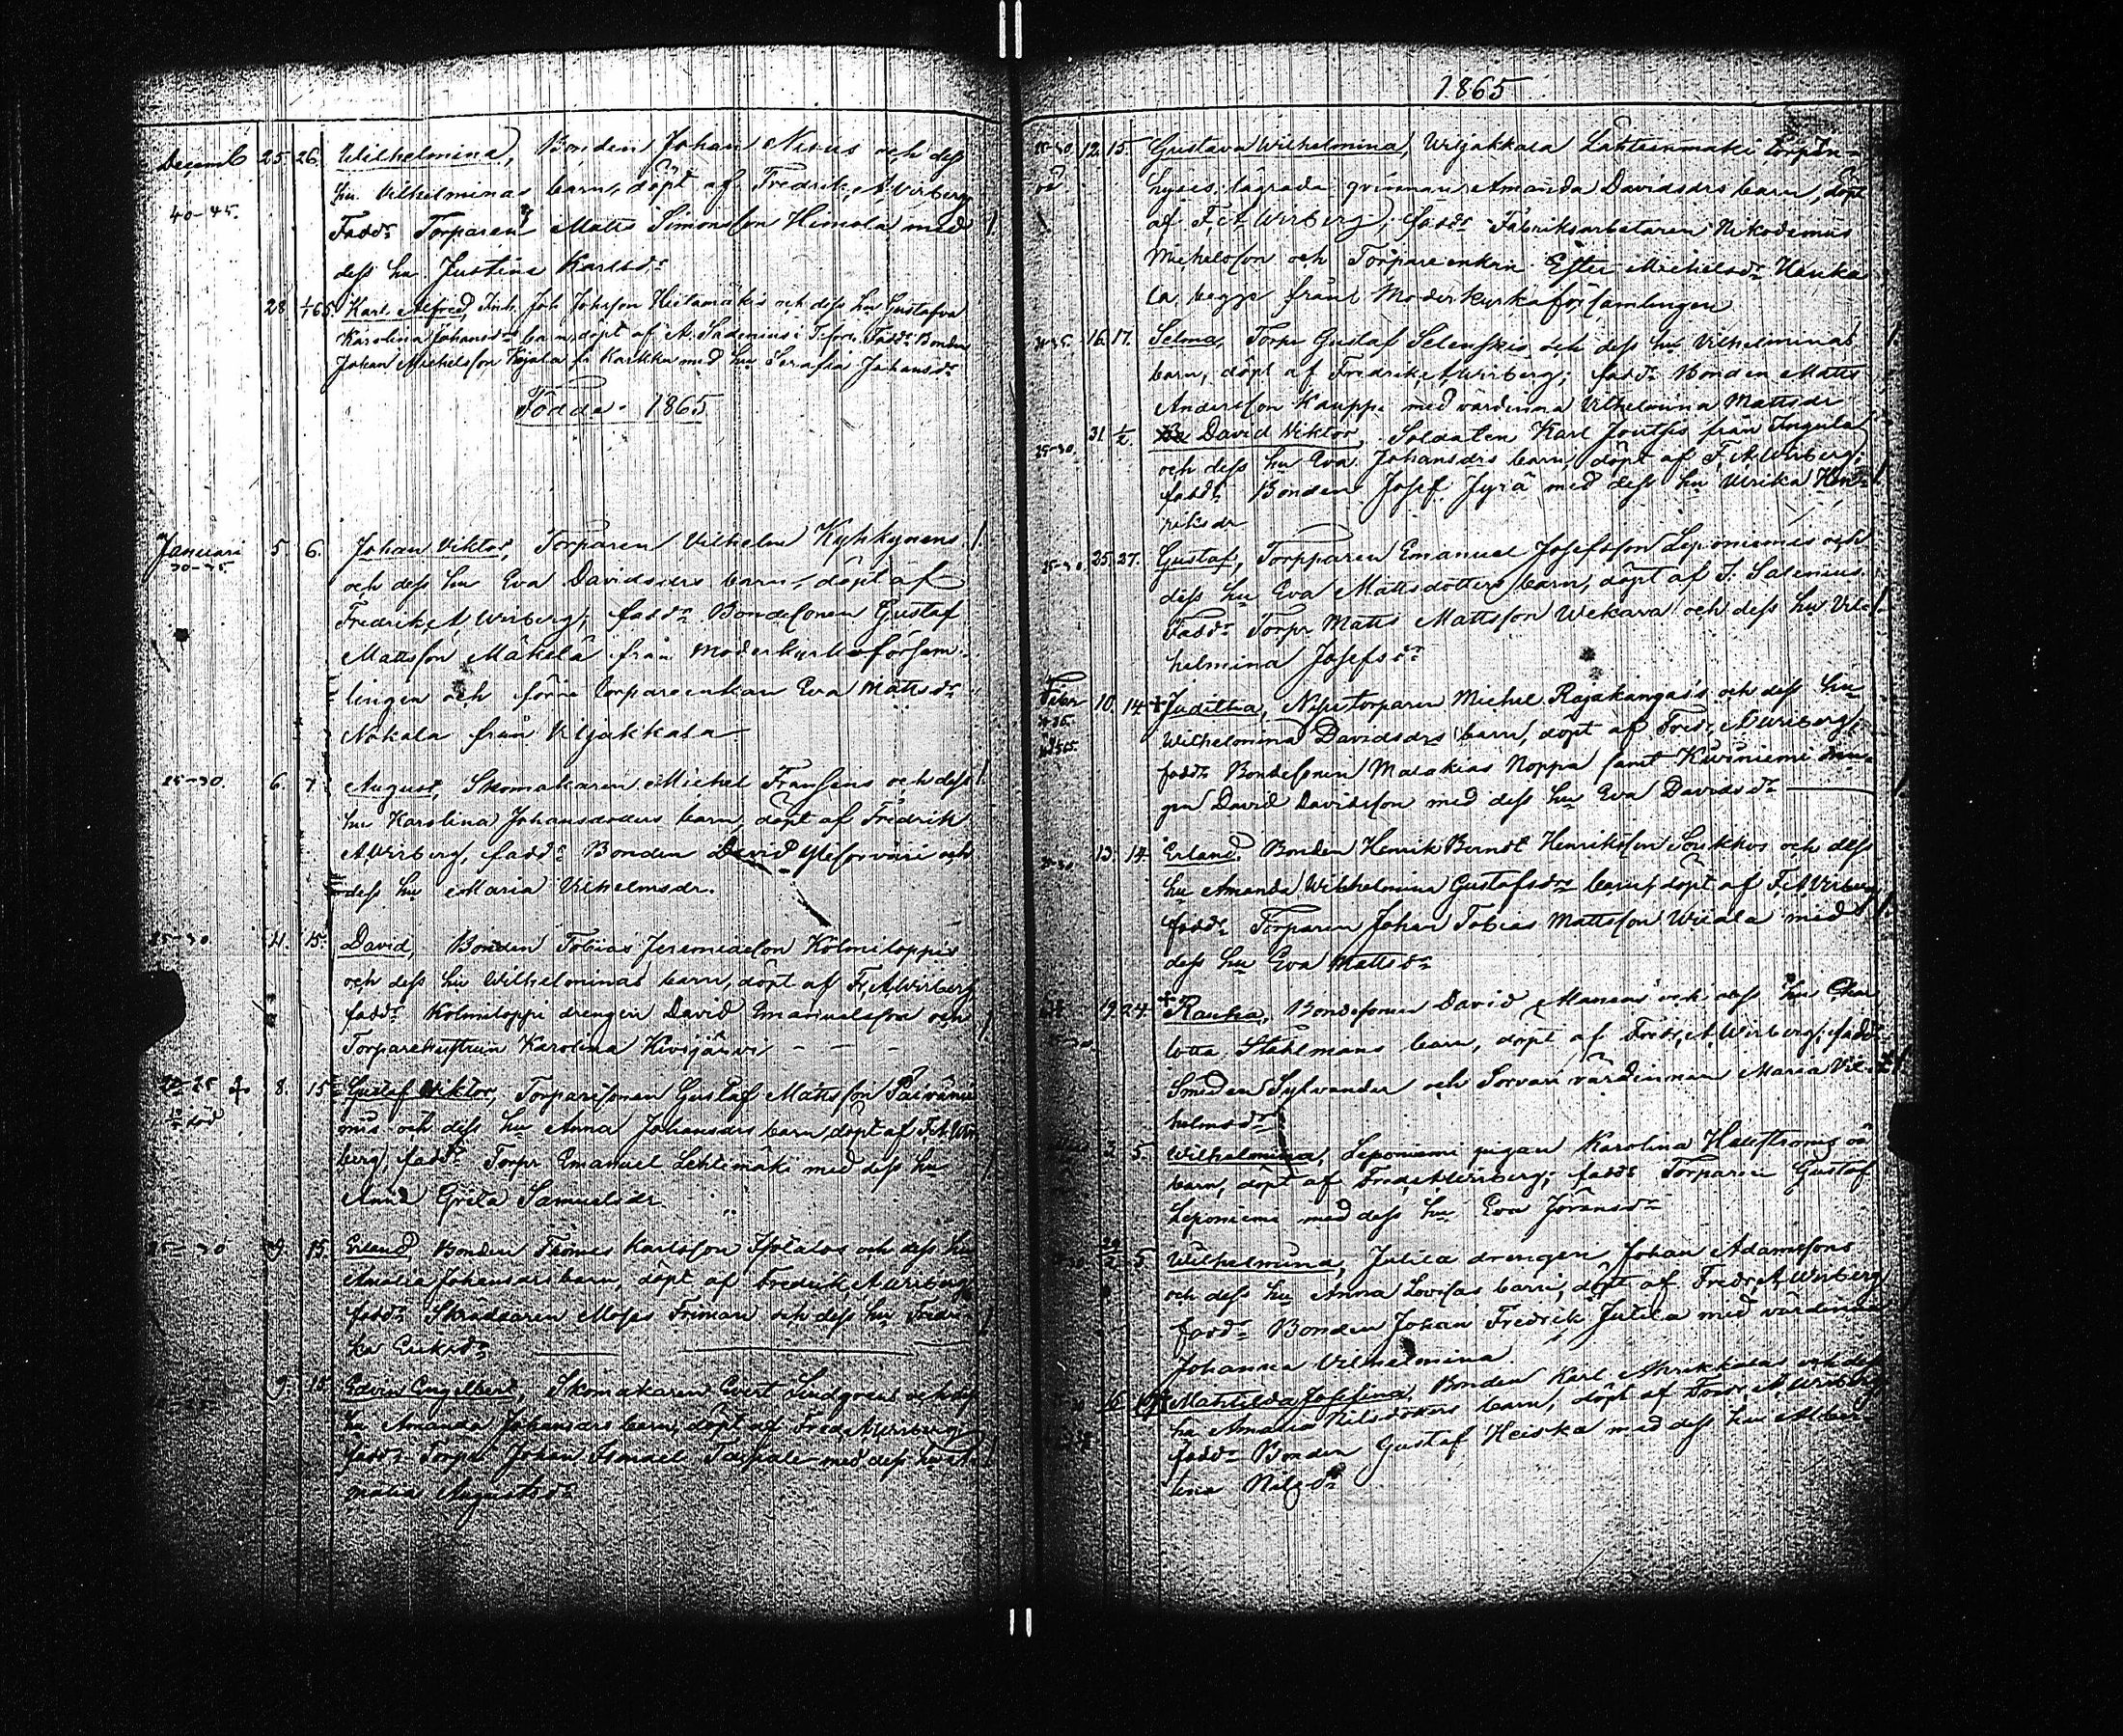 Decemb 25. 26. Wilhelmina, Bonden Johan Nirus och dess
hu Vilhelminas barn, döpt af Fredrik A Wirberg
40-45. Fadd: Torparen Matts Simonsson Himola med
dess hu Justina Karlsdr
28 1/1 65. Karl Alfred, Joh Johsson Heitamäkis och dess hu Gustafva
Karolina Johansdr barn, döpt af A. Salenius i T.fors. Fadd: Bonden
Johan Michelsson Kojola fr Karkku med hu Serafia Johansdr
Födde 1865
Januari 5. 6. Johan Viktor, Torparen Vilhelm Kyhkynens
30-35 och dess hu Eva Davidsdrs barn, döpt af
Fredrik A Wirberg; fadd: Bondesonen Gustaf
Mattsson Mäkelä från Moderkyrkoförsam-
lingen och förre torpareenkan Eva Mattsdr
Nokala från Viljakkala
25-30. 6. 7. August, Skomakaren Michel Fransens och dess
hu Karolina Johansdoters barn, döpt af Fredrik
A Wirberg, fadd: Bonden David Ylisorvari och
dess hu Maria Vilhelmsdr.
25-30 4. 15. David, Bonden Tobias Jeremiasson Kolmiloppis
och dess hu Wilhelminas barn, döpt af F. A Wirberg
fadd: Kolmiloppi drengen David Emanuelsson och
Torparehustrun Karolina Kivijärvi
20-25 + 8. 15 Gustaf Viktor, Torparesonen Gustaf Mattsson Päivänie
mis och dess hu Anna Johansdrs barn, döpt af F. A Wir
berg, fadd: Torpr Emanuel Lehtimäki med dess hu
Anna Greta Samuelsdr.
25-30 9. 15. Erland Bonden Thomas Karlsson Isotalos och dess hu
Amalia Johansdrs barn, döpt af Fredrik A Wirberg
fadd: Skräddaren Moses Friman och dess hu Fredri-
ka Eriksdr
9. 15 Edvin Engelbert, Skomakaren Evert Lindgrens och dess
hu Amanda Johansdrs barn, döpt af Fred. A Wirberg
fadd: Torpr Johan Ismael Taipale med dess hu A
malia Augustsdr
1865
25-30 12. 15. Gustava Wilhelmina, Wiljakkala Lähteenmäki torpön-
hyses lägrade qvinnan Amanda Davidsdrs barn, döpt
af F. A Wirberg; fadd: Fabriksarbetaren Nikodemus
Michelsson och Torpareenkan Ester Michelsdr Hauka
la, begge från Moderkyrkoförsamlingen
16. 17. Selma, Torpr Gustaf Selenskis och dess hu Vilhelminas
barn, döpt af Fredrik A Wirberg; fadd: Bonden Matts
Andersson Kauppi med värdinna Vilhelmina Mattsdr
25-30. 31. 1/2. David Viktor, Soldaten Karl Joutsis från Ingula
och dess hu Eva Johansdrs barn, döpt af F. A Wirberg;
fadd: Bonden Josef Jyrä med dess hu Ulrika Hen-
riksdr
25-30. 25. 27. Gustaf, Torpparen Emanuel Josefsson Leponiemis och
dess hu Eva Mattsdotters barn, döpt af F: Salenius.
Fadd: Torpr Matts Mattsson Wekara och dess hu Vil-
helmina Josefsdr
Febr 10. 14 + Juditha, Torparen Michel Rajakangas's och dess hu
Wilhelmina Davidsdrs barn, döpt af Fred. A Wirberg;
fadd: Bondesonen Malakias Noppa samt Kiviniemi drän-
gen David Davidsson med dess hu Eva Davidsdr
13. 14. Erland, Bonden Henrik Berndt Henriksson Soukkos och dess
hu Amanda Wilhelmina Gustafsdrs barn, döpt af F. A Wirberg
fadd: Torparen Johan Tobias Mattsson Wiiala med
dess hu Eva Mattsdr
19. 24. + Rauha, Bondesonen David Mansas och dess hu Char
lotta Stahlmans barn, döpt af Fred. A Wirberg; fadd:
Smeden Sylvander och Sorvari värdinnan Maria Vil-
helmsdr
3. 5. Wilhelmina, Leponiemi pigan Karolina Hallströms oä
barn, döpt af Fred. A Wirberg; fadd: Torparen Gustaf
Leponiemi med dess hu Eva Göransdr
5 Wilhelmina, Julila drengen Johan Adamssons
och dess hu Anna Lovisas barn, döpt af Fredr. A Wirberg
fadd: Bonden Johan Fredrik Julila med värdinna
Johanna Vilhelmina
16 19 Mathilda Josefina, Bonden Karl Mrikkalas och dess
hu Amalia Nilsdoters barn, döpt af Fredr A Wirberg
fadd: Bonden Gustaf Heiska med dess hu Alber
tina Nilsdr